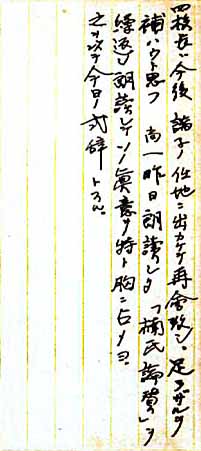 校長ハ今後諸子ノ任地ニ出カケテ再會致シ、足ラザルヲ
補ハウト思フ 尚一昨日朗讀シタ「楠氏論贊」ヲ
繰返シ朗讀シテソノ眞意ヲ特ト胸ニ占メヨ。
之ヲ以テ今日ノ式辞トスル。